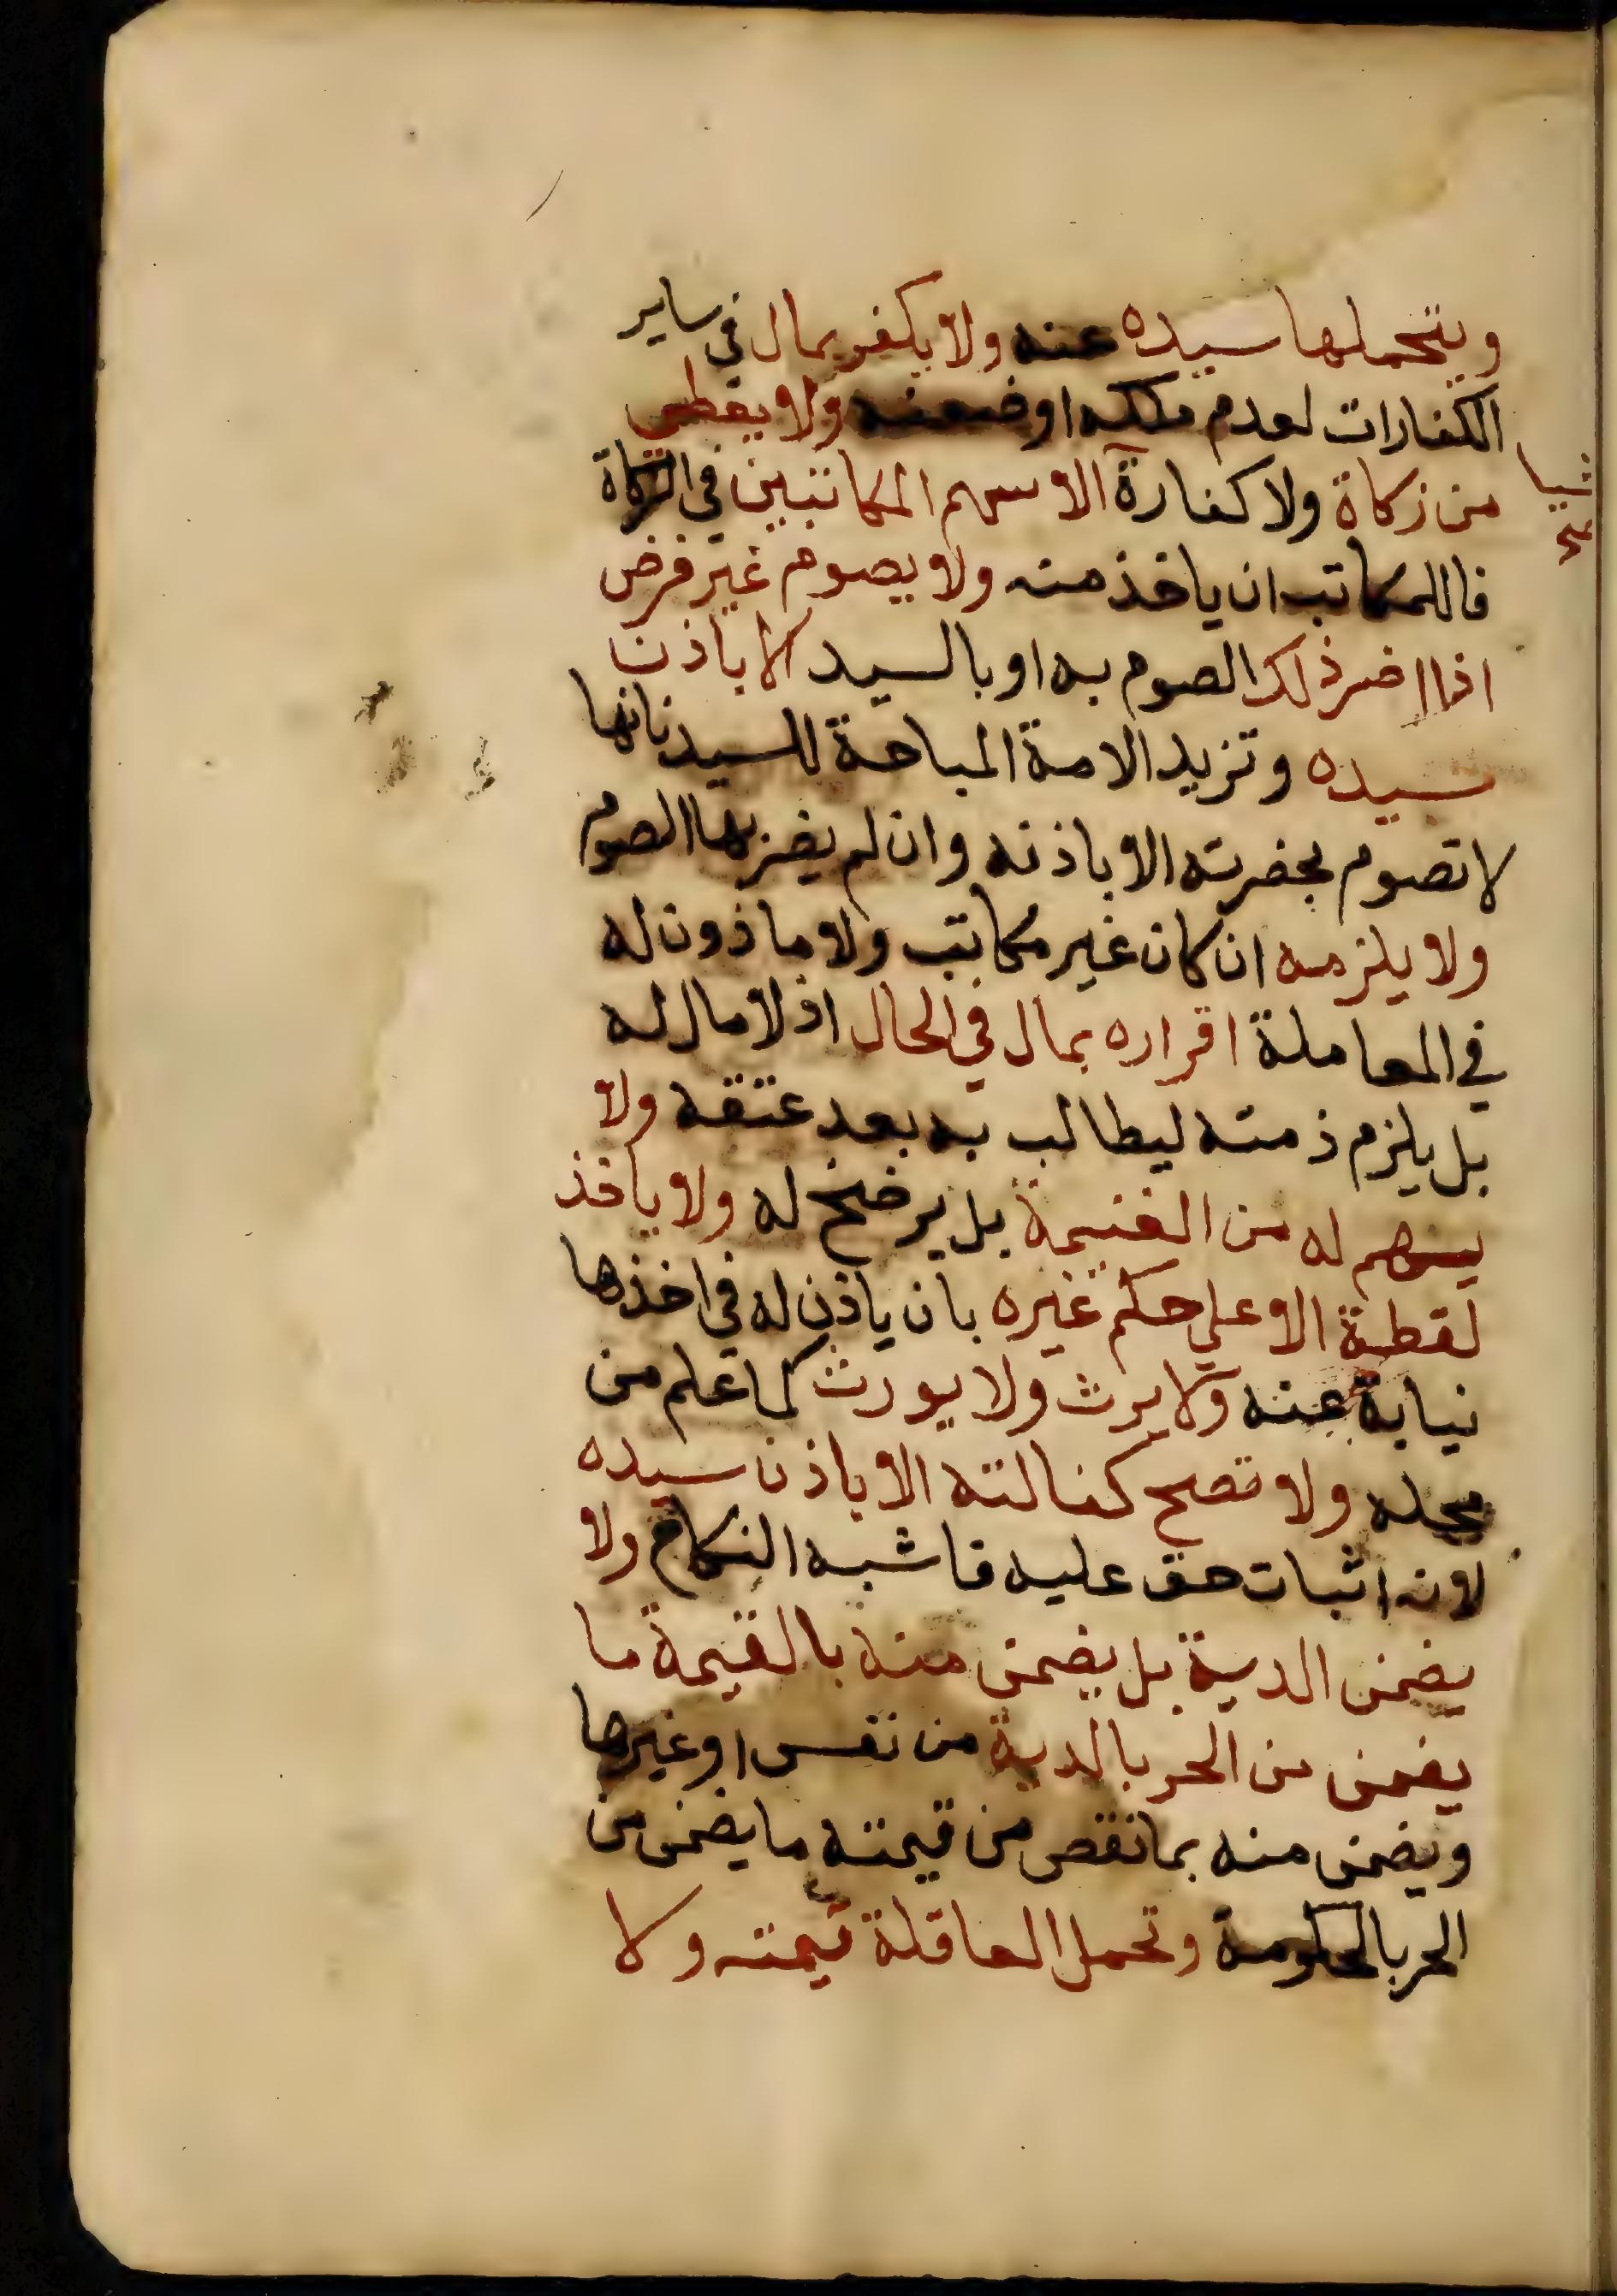 ويتحملها سيده عنه ولا يكفر بمال في ساير
الكفارات لعدم ملكه او ضعفه ولا يعطى
شيا صح
من زكاة ولا كفارة الا سهم المكاتبين في الزكاة
فاللمكاتب ان ياخذ منه ولا يصوم غير فرض
اذا اضر ذلك الصوم به او بالسيد الا باذن
سيده وتزيد الامة المباحة للسيد بانها
لا تصوم بحضرته الا باذنه وان لم يضر بها الصوم
ولا يلزمه ان كان غير مكاتب ولا ماذون له
في المعاملة اقراره بمال في الحال اذ لا مال له
بل يلزم ذمته ليطالب به بعد عتقه ولا
يسهم له من الغنيمة بل يرضخ له ولا ياخذ
لقطة الا على حكم غيره بان ياذن له في اخذها
نيابة عنه ولا يرث ولا يورث كما علم من
محله ولا تصح كفالته الا باذن سيده
لانه اثبات حق عليه فاشبه النكاح ولا
يضمن الدية بل يضمن منه بالقيمة ما
يضمن من الحر بالدية من نفس او غيرها
ويضمن منه بما نقص من قيمته ما يضمن من
الحر بالحكومة وتحمل العاقلة قيمته ولا